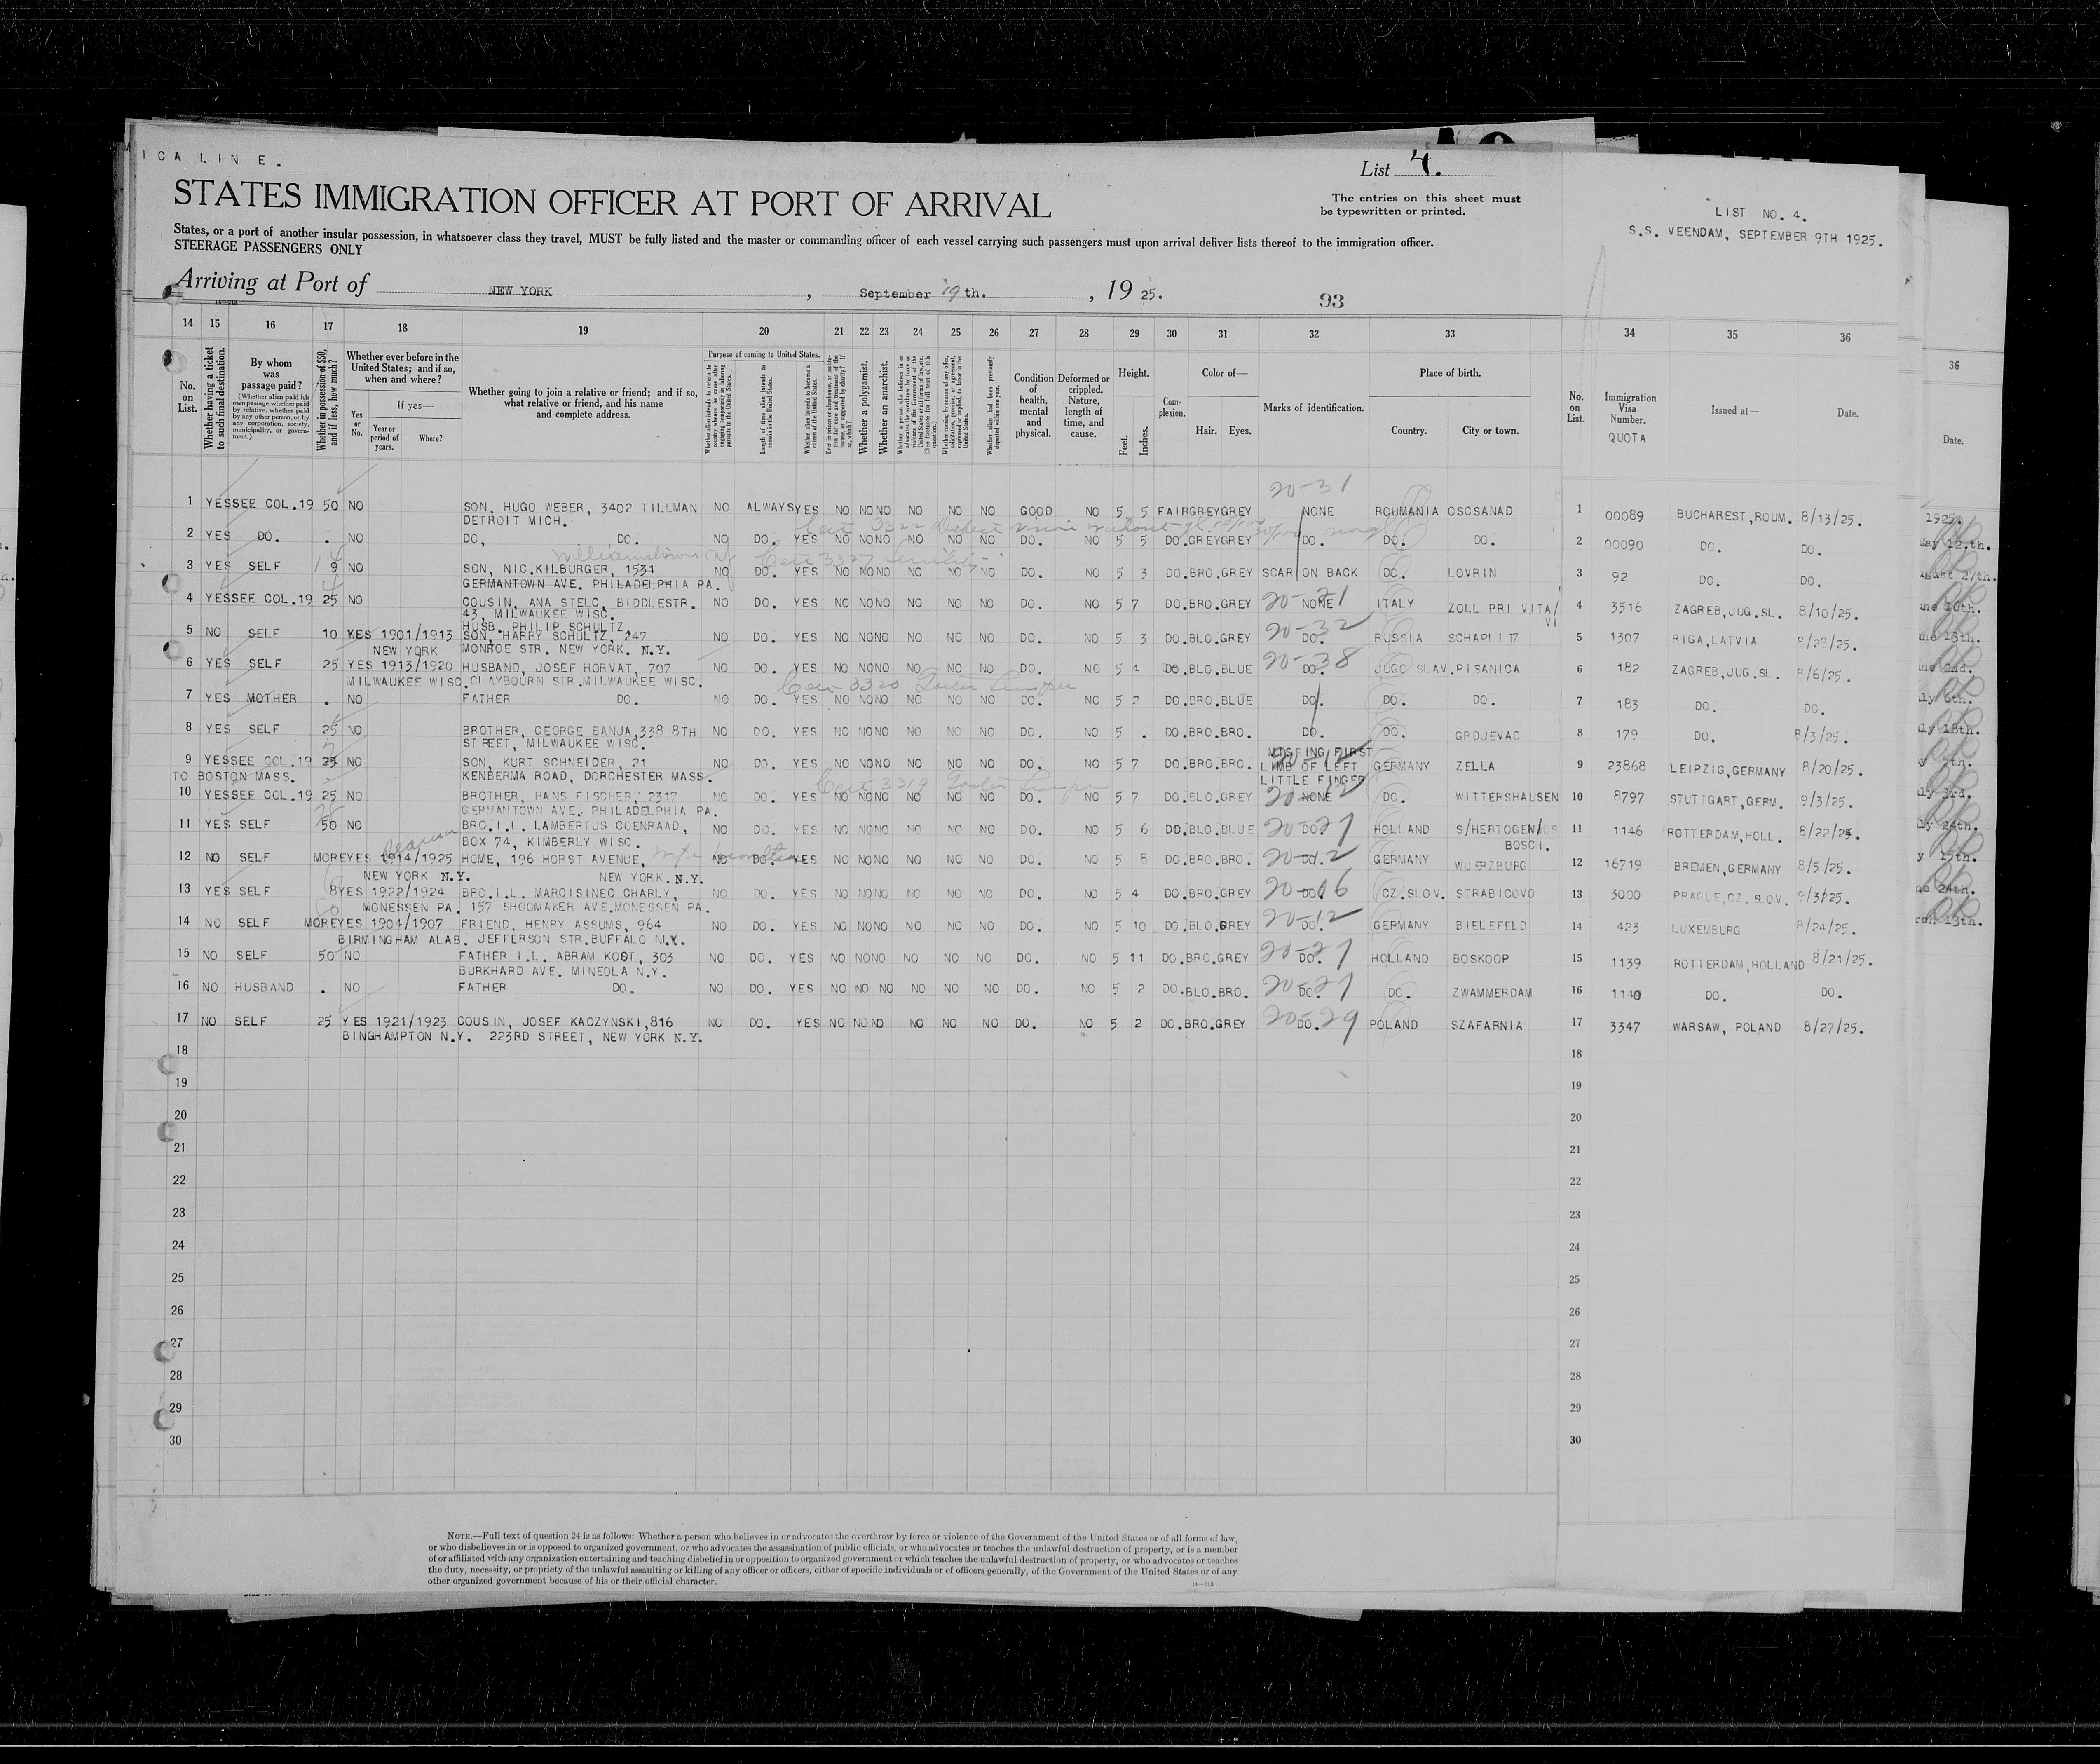 ICA LINE.
List 4.
STATES IMMIGRATION OFFICER AT PORT OF ARRIVAL
The entries on this sheet must
be typewritten or printed.
States, or a port of another insular possession, in whatsoever class they travel, MUST be fully listed and the master or commanding officer of each vessel carrying such passengers must upon arrival deliver lists thereof to the immigration officer.
STEERAGE PASSENGERS ONLY
LIST NO. 4.
S.S. VEENDAM, SEPTEMBER 9TH 1925.
Arriving at Port of NEW YORK, September 19th., 1925.
93
14 15 16 17 18 19 20 21 22 23 24 25 26 27 28 29 30 31 32 33 34 35 36
No. on List.
Whether having a ticket to such final destination.
By whom was passage paid?
(Whether alien paid his own passage, whether paid by relative, whether paid by any other person, or by any corporation, society, municipality, or government.)
Whether in possession of $50, and if less, how much?
Whether ever before in the United States; and if so, when and where?
If yes—
Yes or No.
Year or period of years.
Where?
Whether going to join a relative or friend; and if so, what relative or friend, and his name and complete address.
Purpose of coming to United States.
Length of time alien intends to remain in the United States.
Whether alien intends to become a citizen of the United States.
Whether a polygamist.
Whether an anarchist.
Condition of health, mental and physical.
Deformed or crippled. Nature, length of time, and cause.
Height.
Feet.
Inches.
Complexion.
Color of—
Hair. Eyes.
Marks of identification.
Place of birth.
Country. City or town.
No. on List.
Immigration Visa Number.
QUOTA
Issued at—
Date.
36
Date.
20-31
1 YES SEE COL.19 50 NO SON, HUGO WEBER, 3402 TILLMAN NO ALWAYS YES NO NO NO NO NO NO GOOD NO 5 5 FAIR GREY GREY NONE ROUMANIA OSCSANAD 1 00089 BUCHAREST, ROUM. 8/13/25.
DETROIT MICH.
2 YES DO. . NO DO, DO. NO DO. YES NO NO NO NO NO NO DO. NO 5 5 DO. GREY GREY DO. DO. DO. 2 00090 DO. DO.
3 YES SELF 9 NO SON, NIC.KILBURGER, 1531 NO DO. YES NO NO NO NO NO NO DO. NO 5 3 DO. BRO. GREY SCAR ON BACK DO. LOVRIN 3 92 DO. DO.
GERMANTOWN AVE. PHILADELPHIA PA.
4 YES SEE COL.19 25 NO COUSIN, ANA STELC, BIDDLESTR. NO DO. YES NO NO NO NO NO NO DO. NO 5 7 DO. BRO. GREY NONE ITALY ZOLL PRI VITA/ 4 3516 ZAGREB, JUG.SL. 8/10/25.
43, MILWAUKEE WISC. VI
HUSB. PHILIP SCHULTZ, 20-32
5 NO SELF 10 YES 1901/1913 SON, HARRY SCHULTZ, 247 NO DO. YES NO NO NO NO NO NO DO. NO 5 3 DO. BLO. GREY DO. RUSSIA SCHAPLITZ 5 1307 RIGA, LATVIA 8/28/25.
NEW YORK MONROE STR. NEW YORK. N.Y. 20-38
6 YES SELF 25 YES 1913/1920 HUSBAND, JOSEF HORVAT, 707 NO DO. YES NO NO NO NO NO NO DO. NO 5 4 DO. BLO. BLUE DO. JUGO SLAV. PISANICA 6 182 ZAGREB, JUG.SL. 8/6/25.
MILWAUKEE WISC. CLAYBOURN STR.MILWAUKEE WISC.
7 YES MOTHER . NO FATHER DO. NO DO. YES NO NO NO NO NO NO DO. NO 5 2 DO. BRO. BLUE DO. DO. DO. 7 183 DO. DO.
8 YES SELF 25 NO BROTHER, GEORGE BANJA, 338 8TH NO DO. YES NO NO NO NO NO NO DO. NO 5 . DO. BRO. BRO. DO. DO. GRDJEVAC 8 179 DO. 8/3/25.
STREET, MILWAUKEE WISC.
9 YES SEE COL.19 25 NO SON, KURT SCHNEIDER, 21 NO DO. YES NO NO NO NO NO NO DO. NO 5 7 DO. BRO. BRO. MISSING FIRST LIMB OF LEFT LITTLE FINGER GERMANY ZELLA 9 23868 LEIPZIG, GERMANY 8/20/25.
TO BOSTON MASS. KENBERMA ROAD, DORCHESTER MASS.
10 YES SEE COL.19 25 NO BROTHER, HANS FISCHER, 2317 NO DO. YES NO NO NO NO NO NO DO. NO 5 7 DO. BLO. GREY NONE DO. WITTERSHAUSEN 10 8797 STUTTGART, GERM. 9/3/25.
GERMANTOWN AVE. PHILADELPHIA PA.
11 YES SELF 50 NO BRO.I.L. LAMBERTUS COENRAAD, NO DO. YES NO NO NO NO NO NO DO. NO 5 6 DO. BLO. BLUE DO. HOLLAND S/HERTOGEN/ 11 1146 ROTTERDAM, HOLL. 8/22/25.
BOX 74, KIMBERLY WISC. BOSCH.
12 NO SELF MORE YES 1914/1925 HOME, 196 HORST AVENUE, NO DO. YES NO NO NO NO NO NO DO. NO 5 8 DO. BRO. BRO. DO. GERMANY WUERZBURG 12 16719 BREMEN, GERMANY 8/5/25.
NEW YORK N.Y. NEW YORK. N.Y.
13 YES SELF 8 YES 1922/1924 BRO.I.L. MARCISINEC CHARLY, NO DO. YES NO NO NO NO NO NO DO. NO 5 4 DO. BRO. GREY DO. CZ.SLOV. STRABICOVO 13 3000 PRAGUE, CZ. SLOV. 9/3/25.
MONESSEN PA. 157 SHOOMAKER AVE.MONESSEN PA.
14 NO SELF MORE YES 1904/1907 FRIEND, HENRY ASSUMS, 964 NO DO. YES NO NO NO NO NO NO DO. NO 5 10 DO. BLO. GREY 20-12 DO. GERMANY BIELEFELD 14 423 LUXEMBURG 8/24/25.
BIRMINGHAM ALAB. JEFFERSON STR.BUFFALO N.Y.
15 NO SELF 50 NO FATHER I.L. ABRAM KOST, 303 NO DO. YES NO NO NO NO NO NO DO. NO 5 11 DO. BRO. GREY DO. HOLLAND BOSKOOP 15 1139 ROTTERDAM, HOLLAND 8/21/25.
BURKHARD AVE. MINEOLA N.Y.
16 NO HUSBAND . NO FATHER DO. NO DO. YES NO NO NO NO NO NO DO. NO 5 2 DO. BLO. BRO. DO. DO. ZWAMMERDAM 16 1140 DO. DO.
17 NO SELF 25 YES 1921/1923 COUSIN, JOSEF KACZYNSKI, 816 NO DO. YES NO NO NO NO NO NO DO. NO 5 2 DO. BRO. GREY DO. POLAND SZAFARNIA 17 3347 WARSAW, POLAND 8/27/25.
BINGHAMPTON N.Y. 223RD STREET, NEW YORK N.Y.
18 18
19 19
20 20
21 21
22 22
23 23
24 24
25 25
26 26
27 27
28 28
29 29
30 30
NOTE.—Full text of question 24 is as follows: Whether a person who believes in or advocates the overthrow by force or violence of the Government of the United States or of all forms of law,
or who disbelieves in or is opposed to organized government, or who advocates the assassination of public officials, or who advocates or teaches the unlawful destruction of property, or is a member
of or affiliated with any organization entertaining and teaching disbelief in or opposition to organized government or which teaches the unlawful destruction of property, or who advocates or teaches
the duty, necessity, or propriety of the unlawful assaulting or killing of any officer or officers, either of specific individuals or of officers generally, of the Government of the United States or of any
other organized government because of his or their official character.